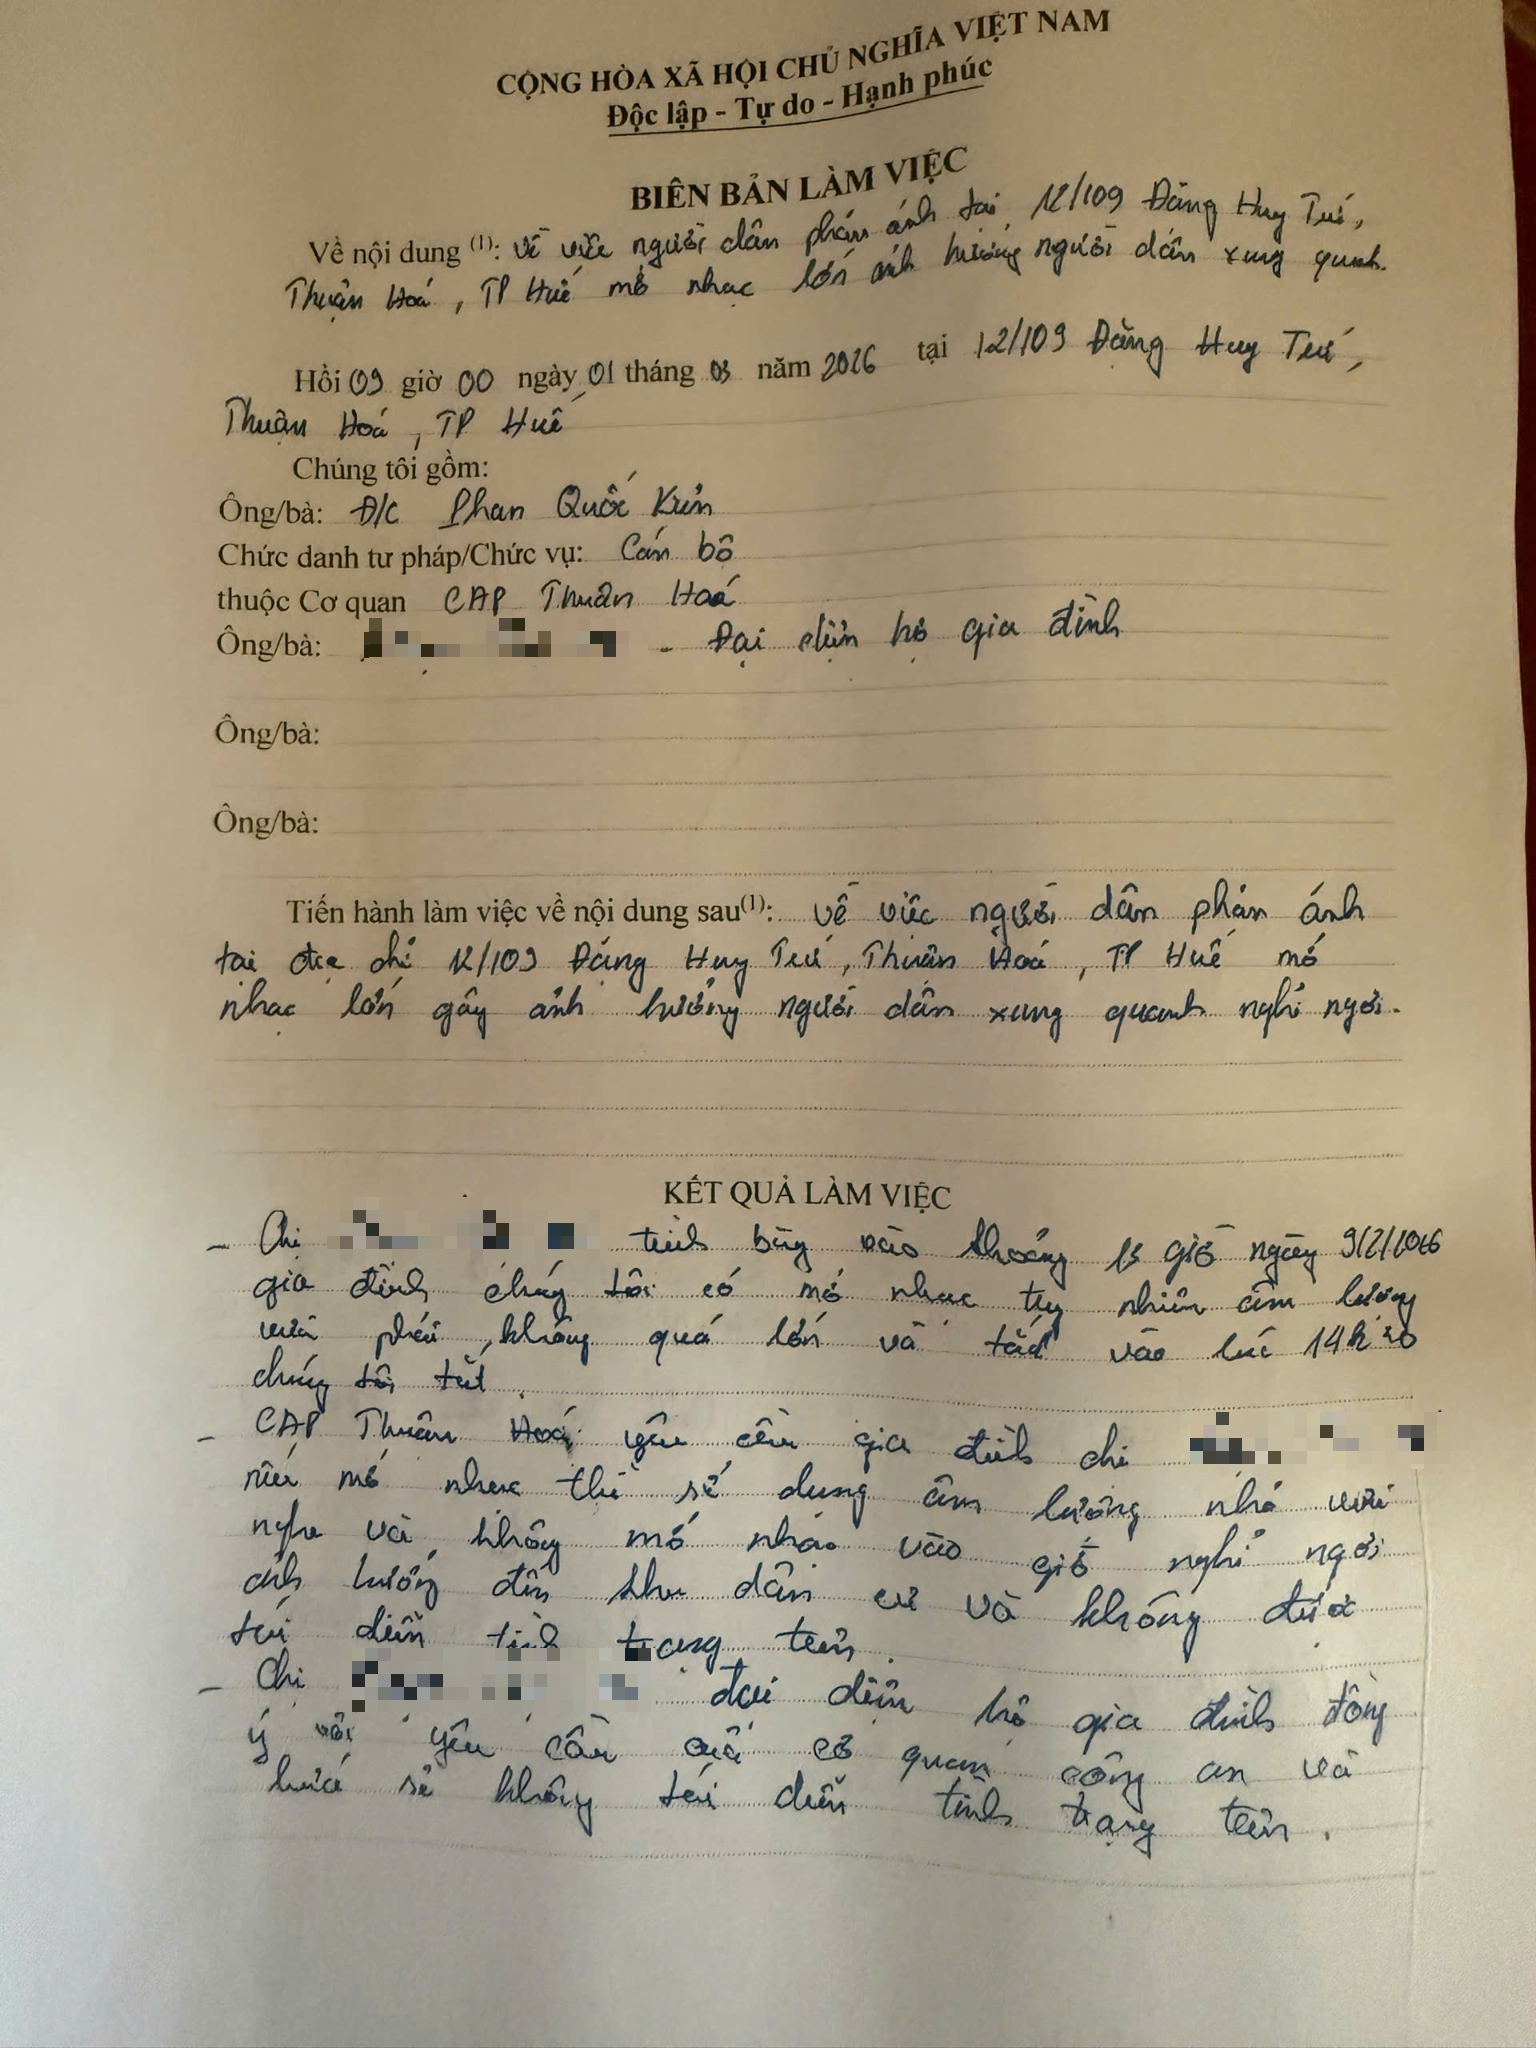 CỘNG HÒA XÃ HỘI CHỦ NGHĨA VIỆT NAM
Độc lập - Tự do - Hạnh phúc
BIÊN BẢN LÀM VIỆC
Về nội dung (1): Về việc người dân phản ánh tại 12/109 Đặng Huy Trứ,
Thuận Hoá, TP Huế mở nhạc lớn ảnh hưởng người dân xung quanh.
Hồi 09 giờ 00 ngày 01 tháng 03 năm 2026 tại 12/109 Đặng Huy Trứ,
Thuận Hoá, TP Huế
Chúng tôi gồm:
Ông/bà: Đ/C Phan Quốc
Chức danh tư pháp/Chức vụ: Cán bộ
thuộc Cơ quan CAP Thuận Hoá
Ông/bà: - Đại diện hộ gia đình
Ông/bà:
Ông/bà:
Tiến hành làm việc về nội dung sau(1): Về việc người dân phản ánh
tại địa chỉ 12/109 Đặng Huy Trứ, Thuận Hoá, TP Huế mở
nhạc lớn gây ảnh hưởng người dân xung quanh nghỉ ngơi.
KẾT QUẢ LÀM VIỆC
- Chị trình bày vào khoảng 13 giờ ngày 9/2/2026
gia đình chúng tôi có mở nhạc tuy nhiên âm lượng
vừa phải, không quá lớn và tắt vào lúc 14h30
chúng tôi tắt.
- CAP Thuận Hoá yêu cầu gia đình chị
nếu mở nhạc thì sẽ dùng âm lượng nhỏ vừa
nghe và không mở nhạc vào giờ nghỉ ngơi
ảnh hưởng đến khu dân cư và không được
tái diễn tình trạng trên.
- Chị đại diện hộ gia đình đồng
ý với yêu cầu của cơ quan công an và
hứa sẽ không tái diễn tình trạng trên.